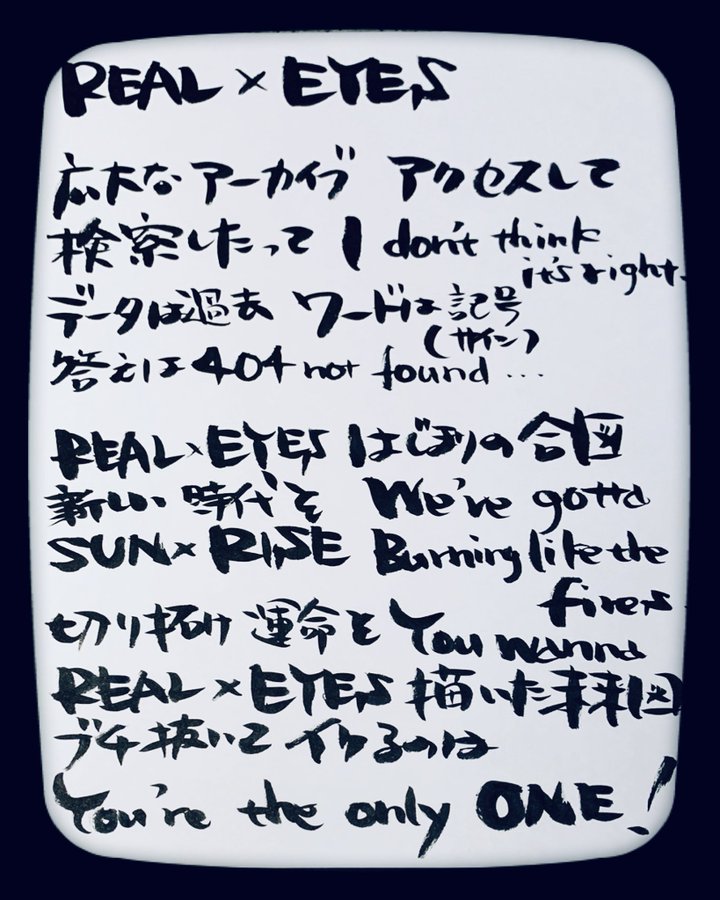 REAL × EYES
広大な アーカイブ アクセスして
検索したって I don't think
it's right.
データは過去 ワードは記号
(サイン)
答えは 404 not found ...
REAL×EYES はじまりの合図
新しい 時代を We've gotta
SUN×RISE Burning like the
fires.
切り拓け 運命を You wanna
REAL × EYES 描いた未来図
ブチ抜いて イケるのは
You're the only ONE!